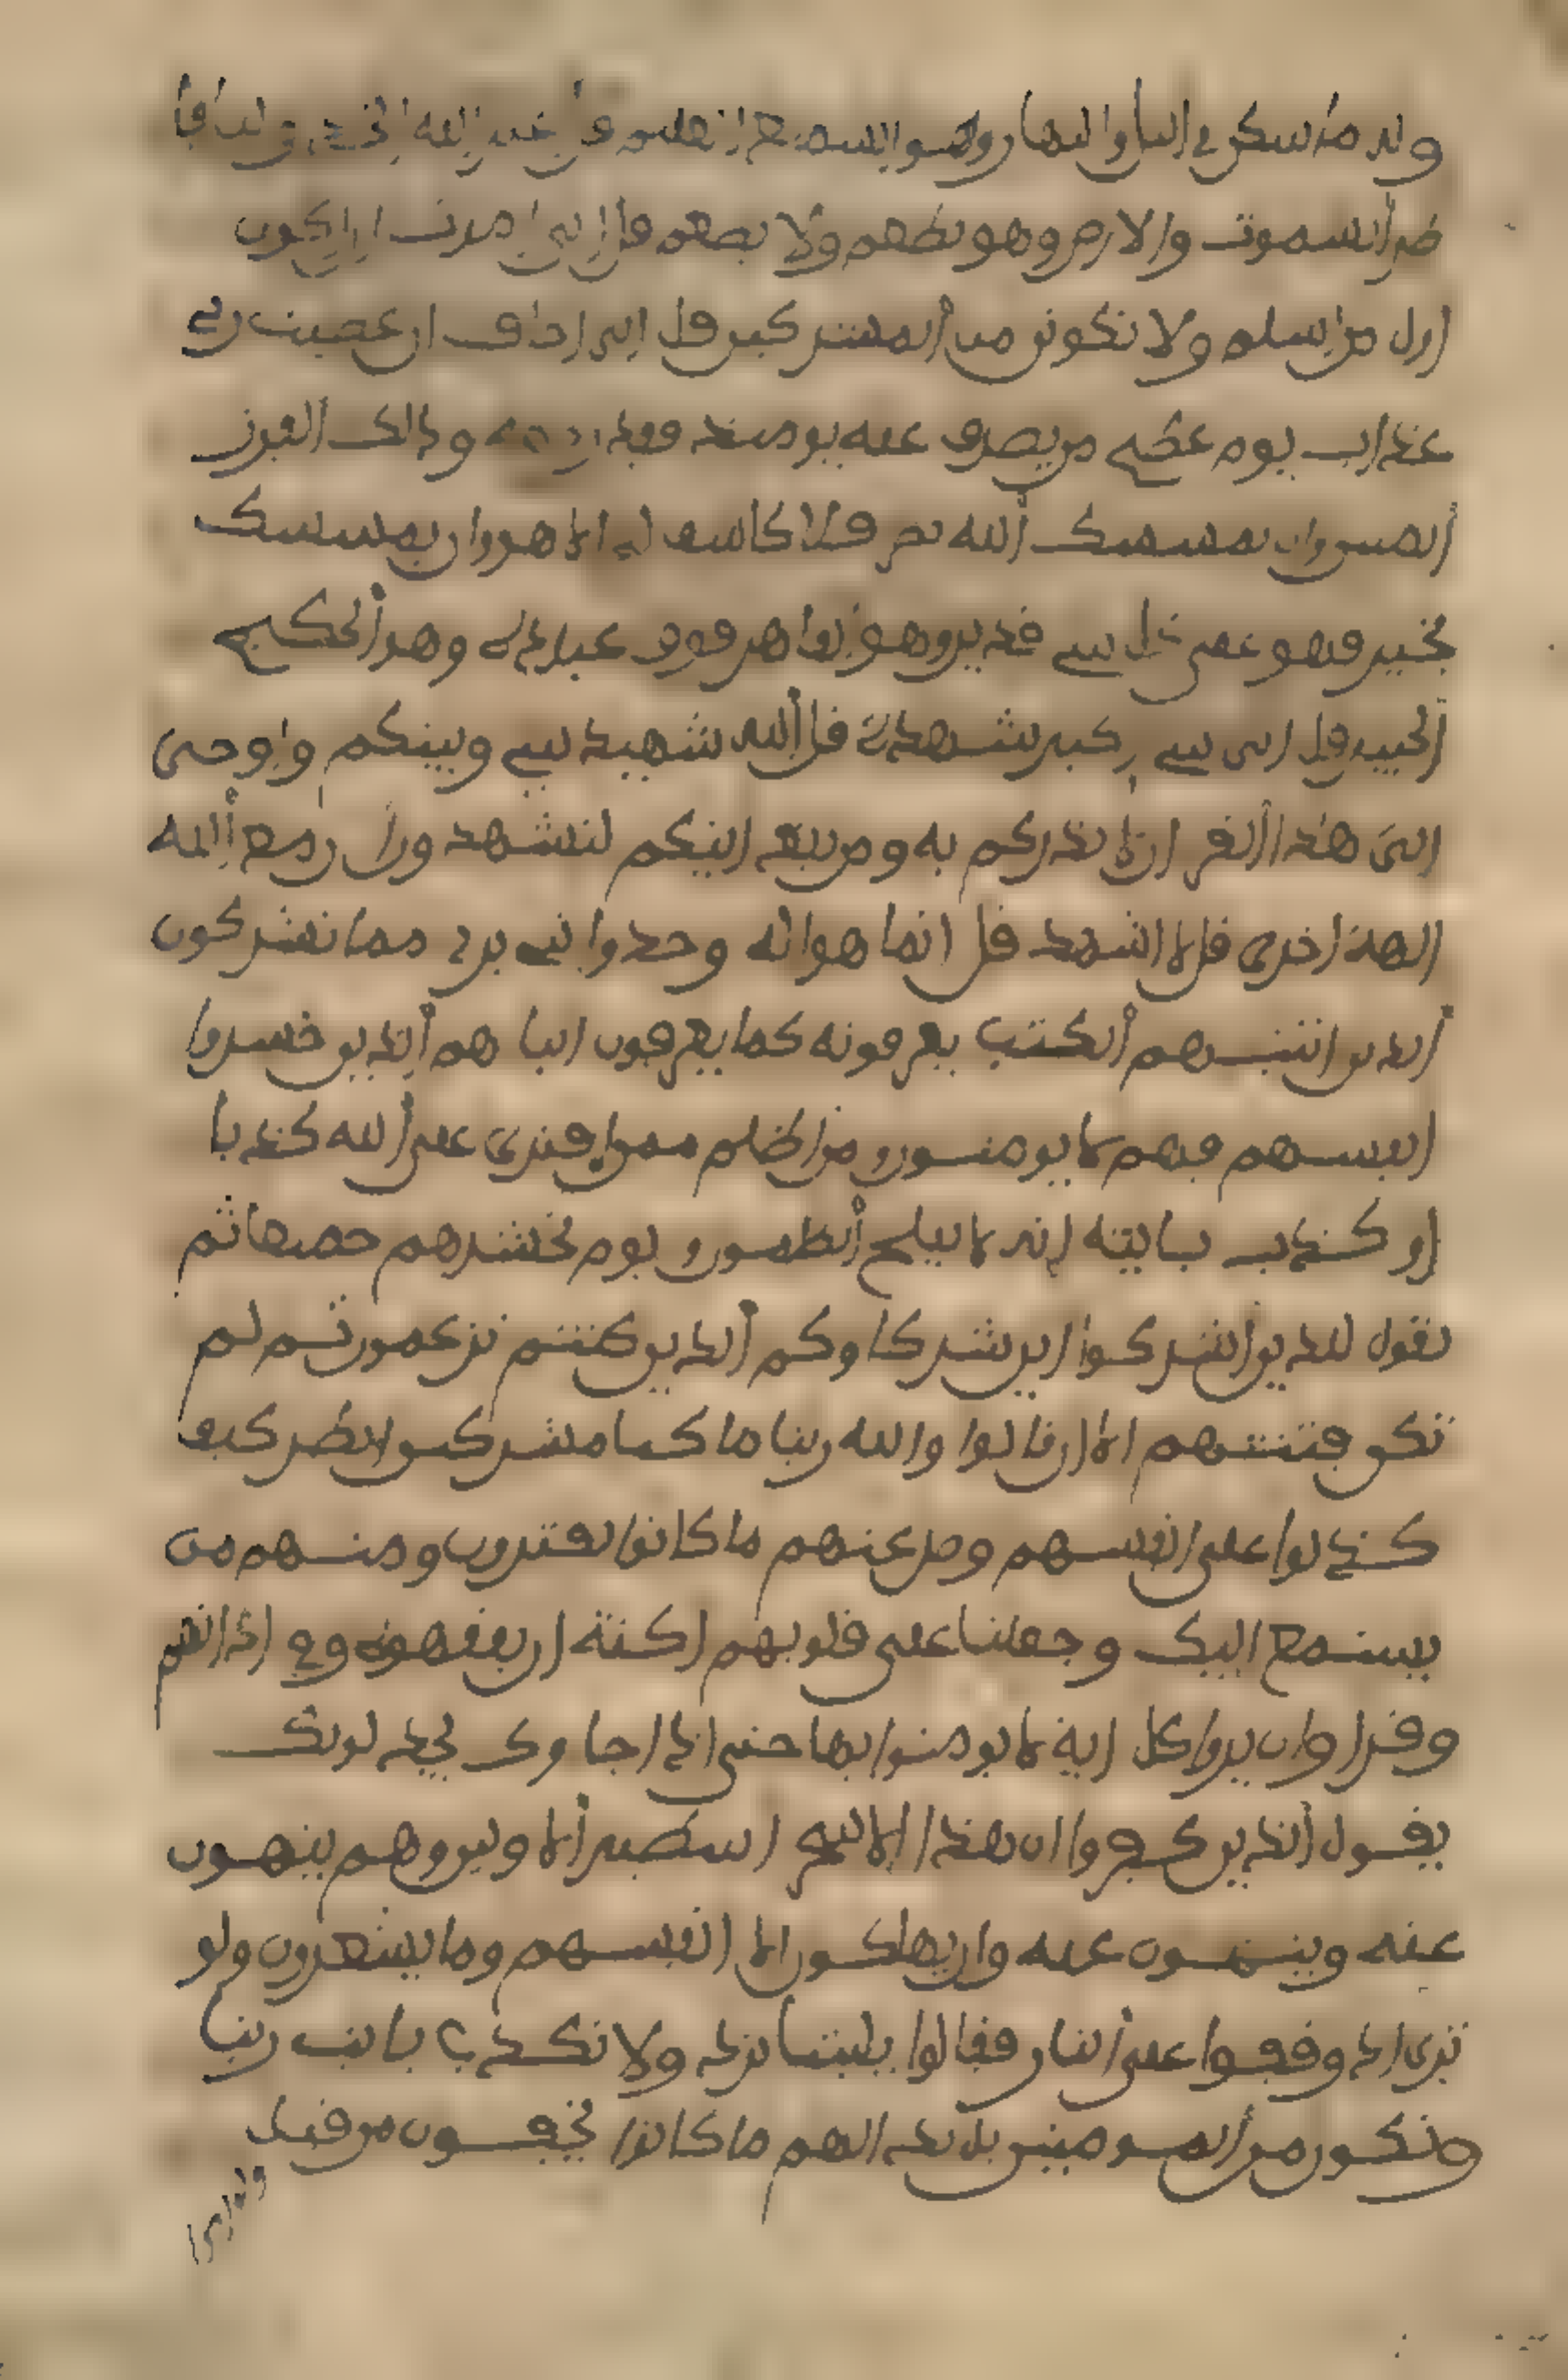 وله ما سكن في اليل والنهار وهو السميع العليم قل أغير الله أتخذ وليا فا
طر السموت والارض وهو يطعم ولا يطعم قل إني أمرت أن أكون
أول من أسلم ولا تكونن من المشركين قل إني أخاف إن عصيت ربي
عذاب يوم عظيم من يصرف عنه يومئذ فقد رحمه وذالك الفوز
المبين وإن يمسسك الله بضر فلا كاشف له إلا هو وإن يمسسك
بخير فهو على كل شيء قدير وهو القاهر فوق عباده وهو الحكيم
الخبير قل أي شيء أكبر شهدة قل الله شهيد بيني وبينكم وأوحي
إلي هذا القرءان لأنذركم به ومن بلغ أينكم لتشهدون أن مع الله
ءالهة أخرى قل لا أشهد قل إنما هو إله وحد وإنني بريء مما تشركون
الذين ءاتينهم الكتب يعرفونه كما يعرفون أبناءهم الذين خسروا
أنفسهم فهم لا يومنون ومن أظلم ممن افترى على الله كذبا
أو كذب بئايته إنه لا يفلح الظلمون ويوم نحشرهم جميعا ثم
نقول للذين أشركوا أين شركاؤكم الذين كنتم تزعمون ثم لم
تكن فتنتهم إلا أن قالوا والله ربنا ما كنا مشركين انظر كيف
كذبوا على أنفسهم وضل عنهم ما كانوا يفترون ومنهم من
يستمع إليك وجعلنا على قلوبهم أكنة أن يفقهوه وفي ءاذانهم
وقرا وإن يروا كل ءاية لا يومنوا بها حتى إذا جاءوك يجدلونك
يقول الذين كفروا إن هذا إلا أسطير الأولين وهم ينهون
عنه وينئون عنه وإن يهلكون إلا أنفسهم وما يشعرون ولو
ترى إذ وقفوا على النار فقالوا يليتنا نرد ولا نكذب بئايت ربنا
ونكون من المومنين بل بدا لهم ما كانوا يخفون من قبل